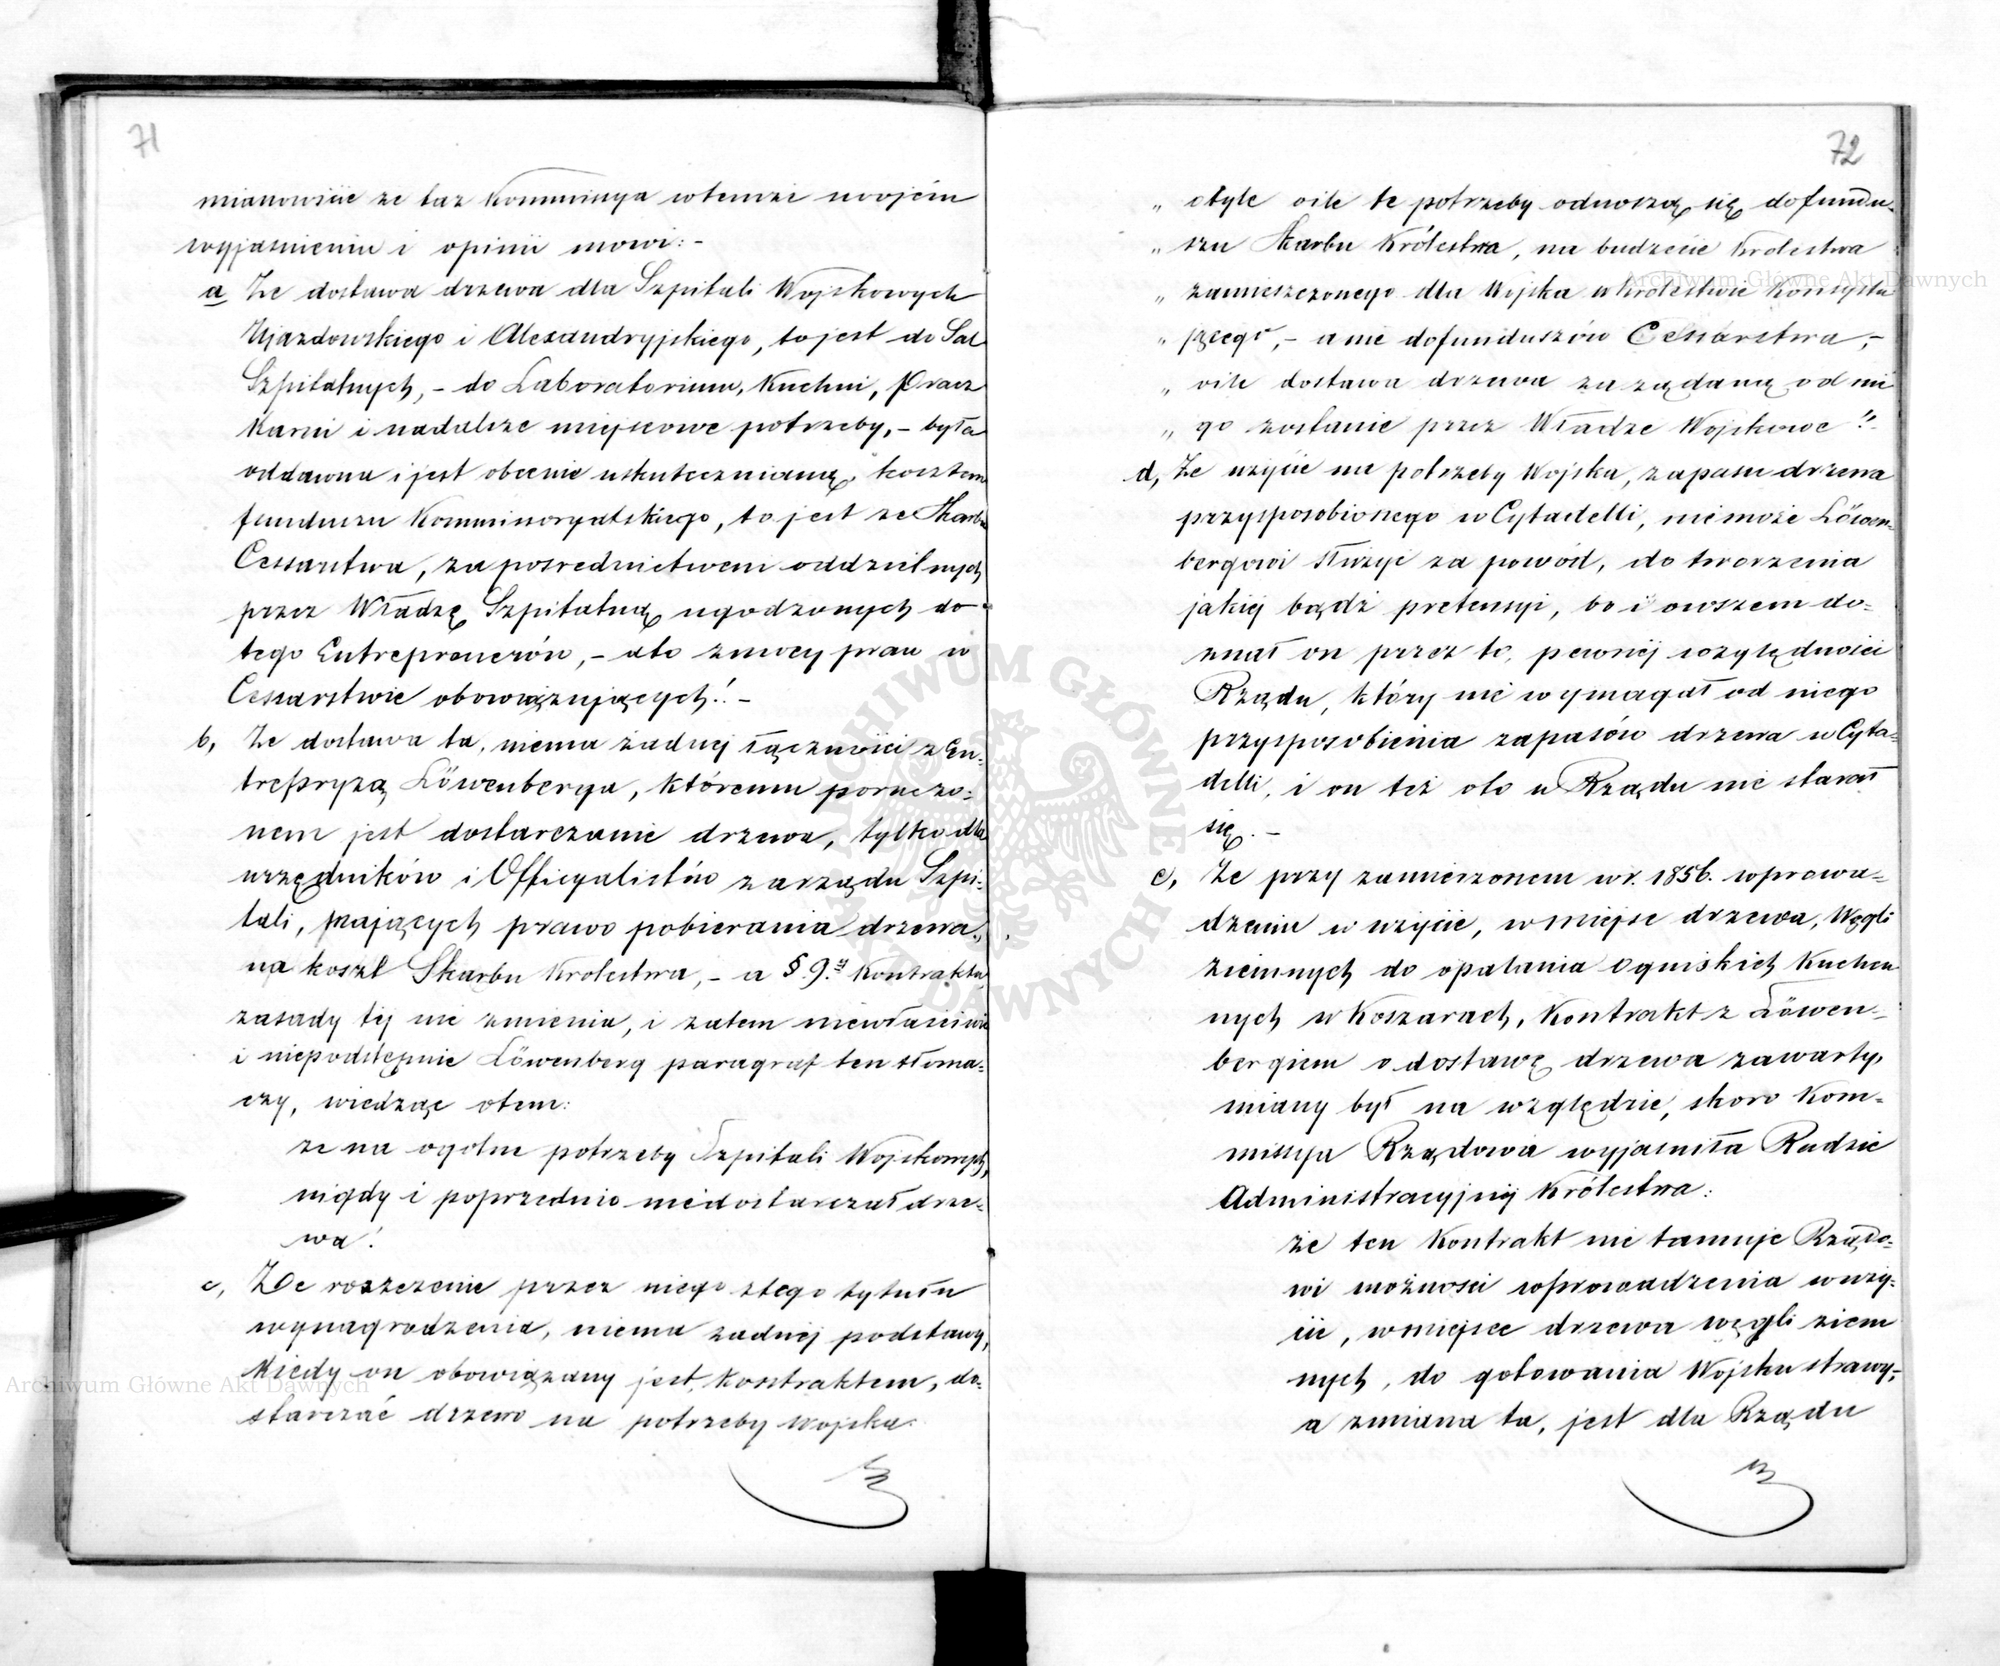 71
mianowicie że taż Kommissya wtemże swojém
wyjasnieniu i opinii mowi: -
a Że dostawa drzewa dla Szpitali Wojskowych
Ujazdowskiego i Alexandryjskiego, to jest do Sal
Szpitalnych, - do Laboratorium, Kuchni, Pracz
Karni i nadalsze miejscowe potrzeby, - była
oddawna i jest obecnie uskuteczniana, kosztem
funduszu Kommissoryatskiego, to jest ze Skarbu
Cessarstwa, za posrednictwem oddzielnych
przez Władzę Szpitalną ugodzonych do
tego Entreprenerów, - ato zmocy praw w
Cesarstwie obowiązujących! -
b, Że dostawa ta, niema żadnej łączności z En-
trepryzą Löwenberga, któremu poruczo-
nem jest dostarczanie drzewa, tylko dla
urzędników i Officyalistów zarządu Szpi-
tali, mających prawo pobierania drzewa,
na koszt Skarbu Krolestwa, - a § 9.ty Kontraktu
zasady téj nie zmienia, i zatem niewłaściwie
i niepodstępnie Löwenberg paragraf ten tłoma-
czy, wiedząc otem:
że na ogolne potrzeby Szpitali Wojskowych,
nigdy i poprzednio niedostarczał drze-
wa!
c, Że roszczenie przez niego ztego tytułu
wynagrodzenia, niema żadnéj podstawy,
Kiedy on obowiązany jest, Kontraktem, do-
starczać drzewo na potrzeby Wojska:
72
„ otyle oile te potrzeby odnoszą się dofundu-
„ szu Skarbu Królestwa, na budżecie Krolestwa
„ zamieszczonego dla Wojska w Krolestwie Konsystu
„ jącego, - a nie dofunduszów Cessarstwa, -
„ oile dostawa drzewa zażądaną od nie
„ go zostanie przez Władze Wojskowe !"
d, Że użycie na potrzeby Wojska, zapasu drzewa
przysposobionego w Cytadelli, niemoże Löwen-
bergowi służyć za powód, do tworzenia
jakiéj bądź pretensyi, bo i owszem do-
znał on przez to, pewnéj względności
Rządu, który nie wymagał od niego
przysposobienia zapasów drzewa w Cyta-
delli, i on też oto u Rządu nie starał
się. -
e, Że przy zamierzonem w r. 1856. wprowa-
dzeniu w użycie, w miejsc drzewa, Węgli
ziemnych do opalania Ognisk­ich Kuchen
nych w Koszarach, Kontrakt z Löwen-
bergiem o dostawę drzewa zawarty,
miany był na względzie, skoro Kom-
missya Rządowa wyjasniła Radzie
Administracyjnéj Królestwa:
że ten Kontrakt nie tamuje Rządo-
wi możności wprowadzenia wuży-
cie, wmiejsce drzewa węgli ziem
nych, do gotowania Wojsku strawy,-
a zmiana ta, jest dla Rządu
Archiwum Główne Akt Dawnych
Archiwum Główne Akt Dawnych
ARCHIWUM GŁÓWNE AKT DAWNYCH